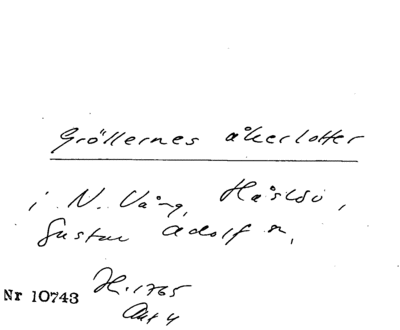 Gröllernes åkerlotter
i N. Vång, Håslöv,
Gustav Adolf sn,
H. 1765
Nr 10743 Akt 4